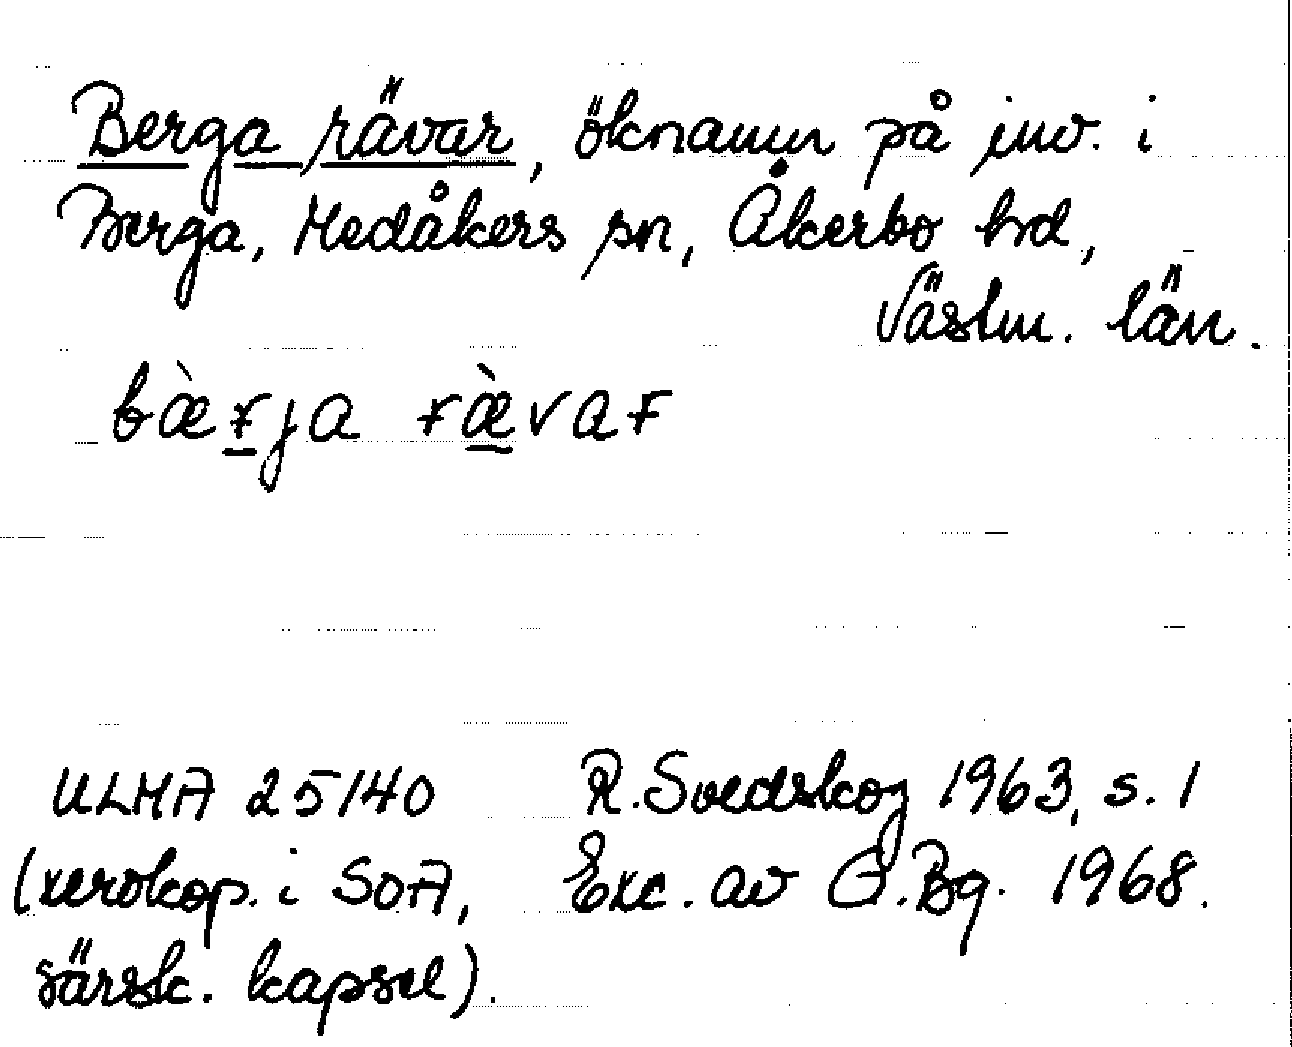 Berga rävar, öknamn på inv. i
Berga, Medåkers sn, Åkerbo hd,
Västm. län.
bæ̀r̵ja r̵æ̀var̵
ULMA 25140 R. Svedskog 1963, s. 1
(xerokop. i SOA, Exc. av G.Bg. 1968.
särsk. kapsel).